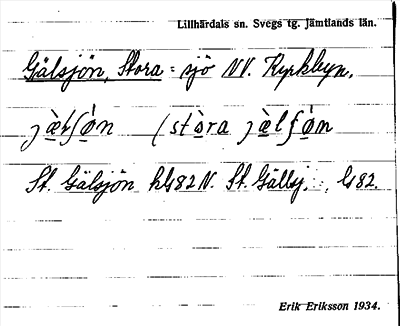 Lillhärdals sn. Svegs tg. Jämtlands län.
Gälsjön, Stora = sjö NV. Kyrkbyn.
jæ̀lʃø̀n (stòra jæ̀lʃø̀n
St. Gälsjön hk182 N. St. Gällsj.
Erik Eriksson 1934.